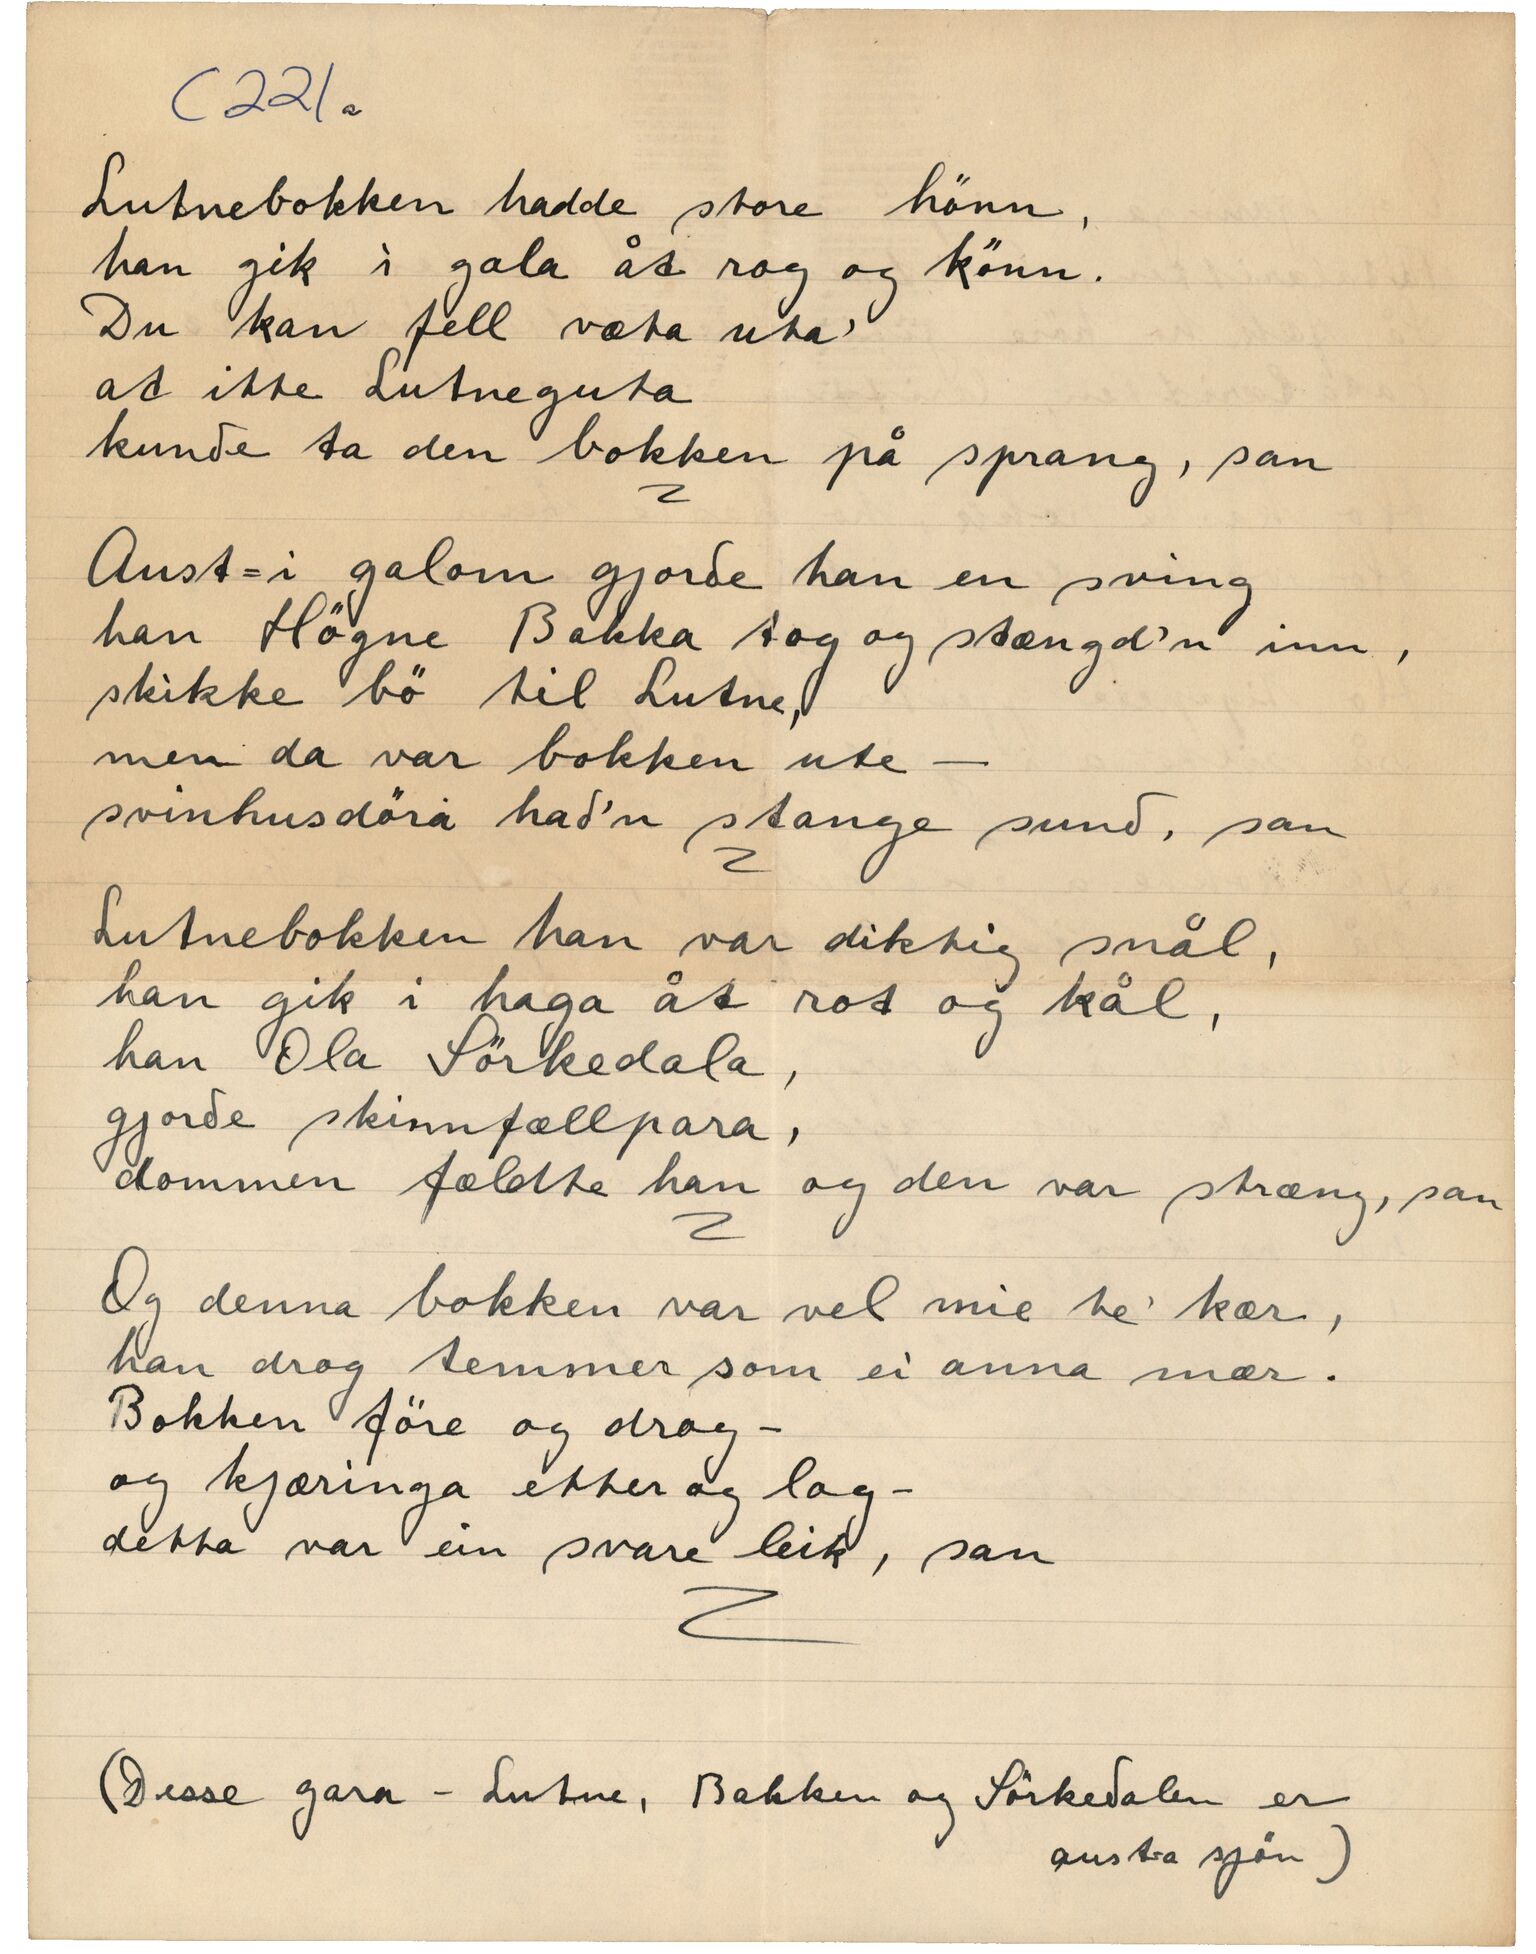 C 221 a
Lutnebokken hadde store hönn,
han gik i gala åt rog og könn.
Du kan fell væta uta'
at itte Lutneguta
kunde ta den bokken på sprang, san
Aust=i galom gjorde han en sving
han Högne Bakka tog og stængd'n inn,
skikke bö til Lutne,
men da var bokken ute —
svinhusdöra had'n stange sund, san
Lutnebokken han var diktig snål,
han gik i haga åt rot og kål,
han Ola Sörkedala,
gjorde skinnfællpara,
dommen fældte han og den var stræng, san
Og denna bokken var vel mie te' kær,
han drog temmer som ei anna mær.
Bokken före og drog -
og kjæringa etter og log -
detta var ein svare leik, san
(Desse gara - Lutne, Bakken og Sörkedalen er
austa sjön)